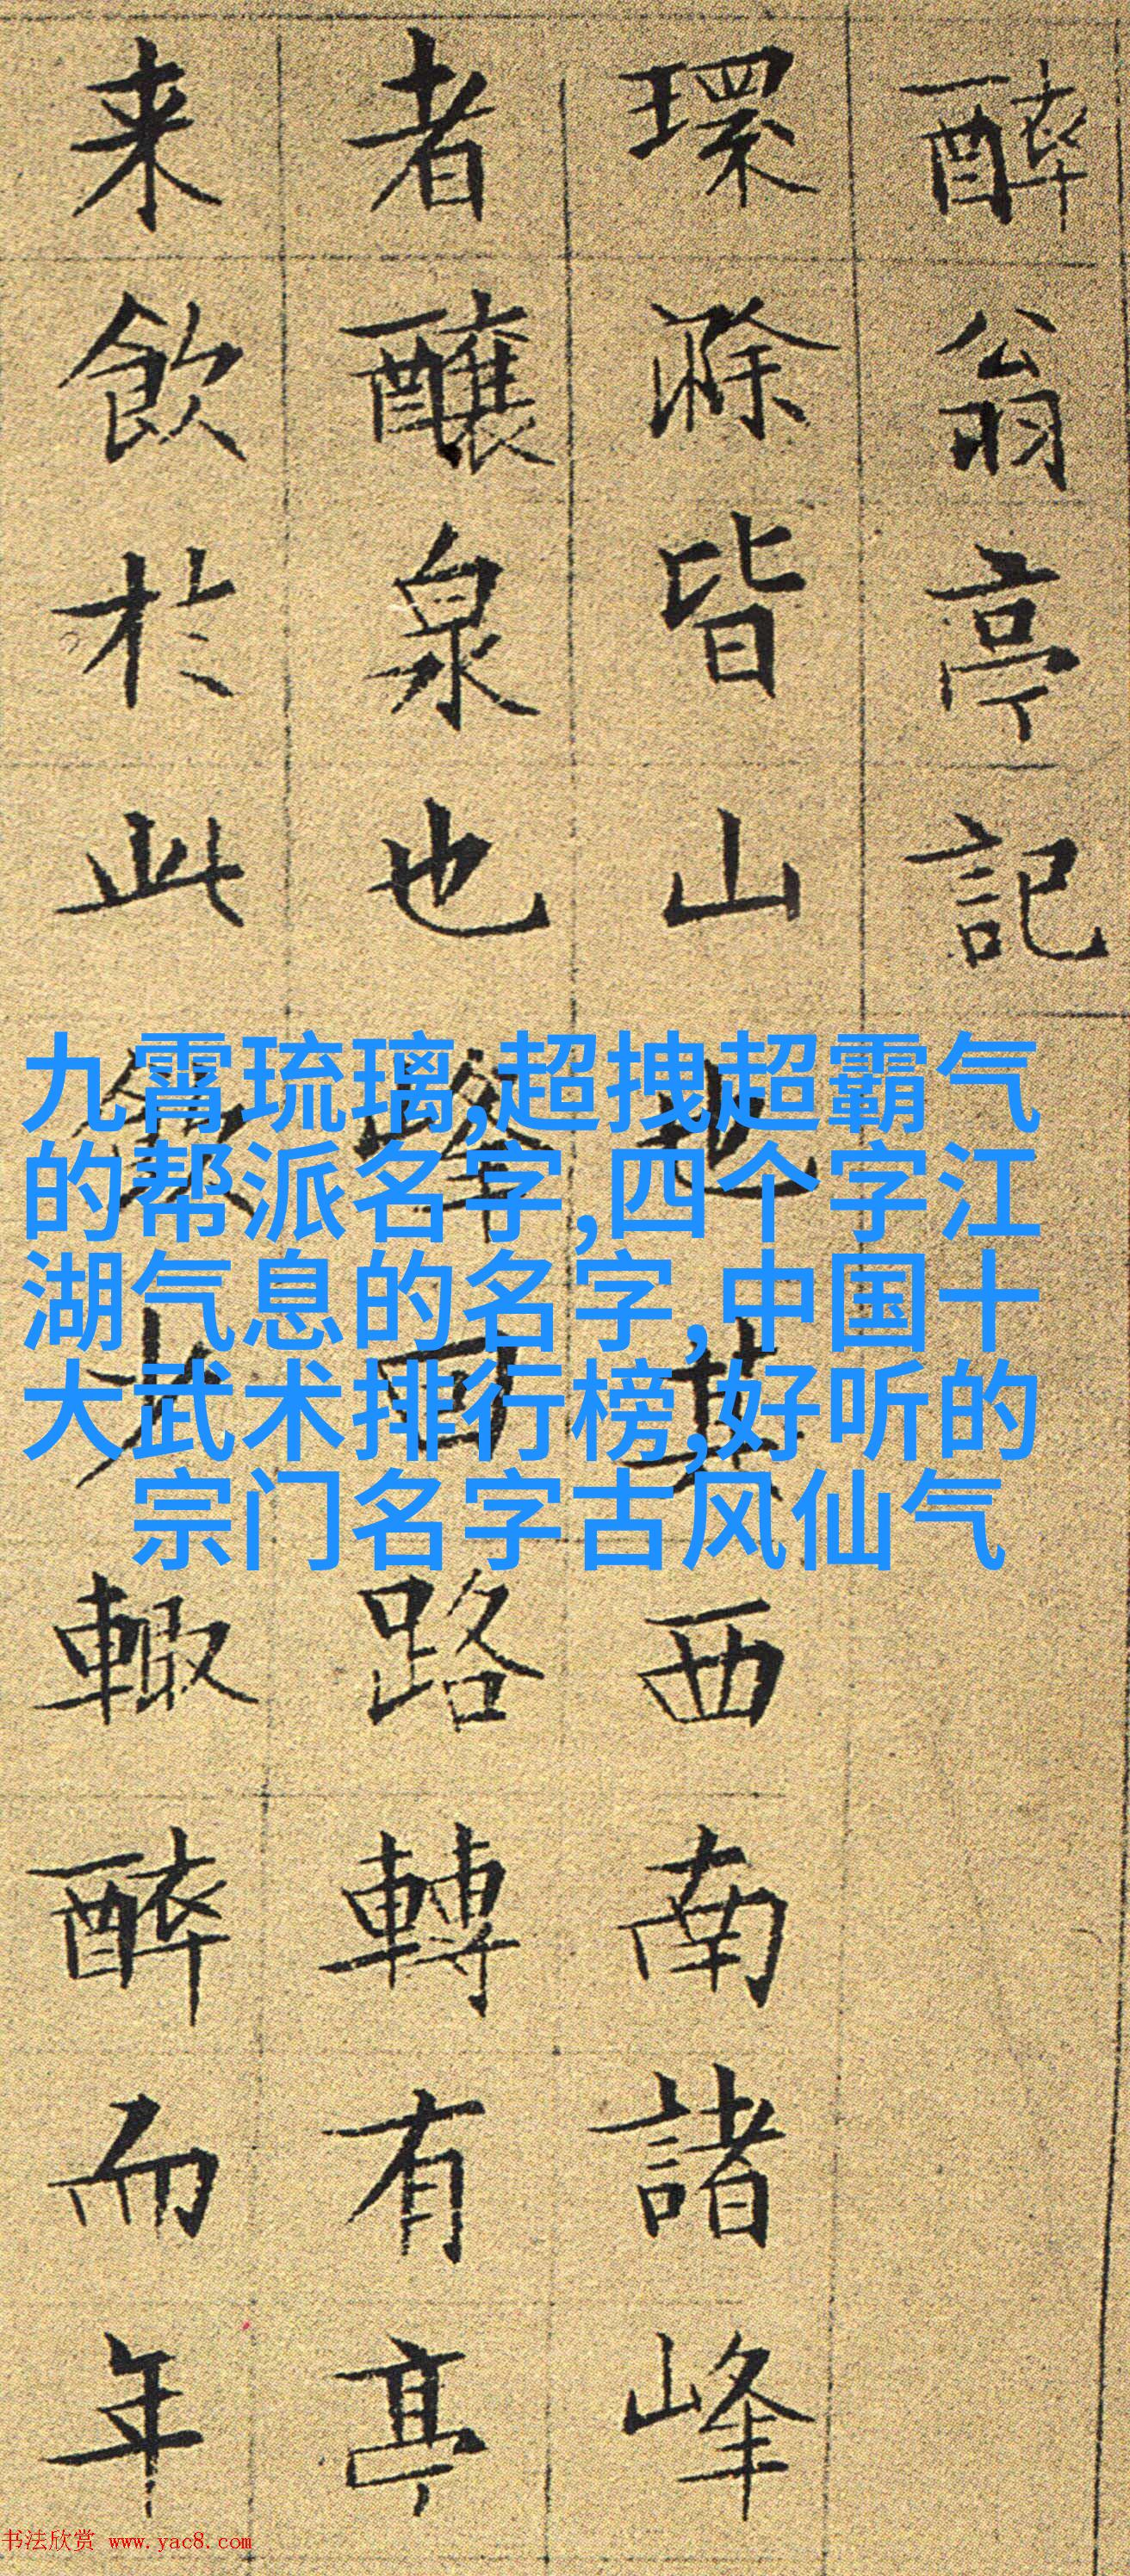 醉翁亭記
環滁皆山也其西南諸峰
者釀泉也峰回路轉有亭
来飲於此飲少輒醉而年
九霄琉璃,超拽超霸气
的帮派名字,四个字江
湖气息的名字,中国十
大武术排行榜,好听的
宗门名字古风仙气
书法欣赏 www.yac8.com